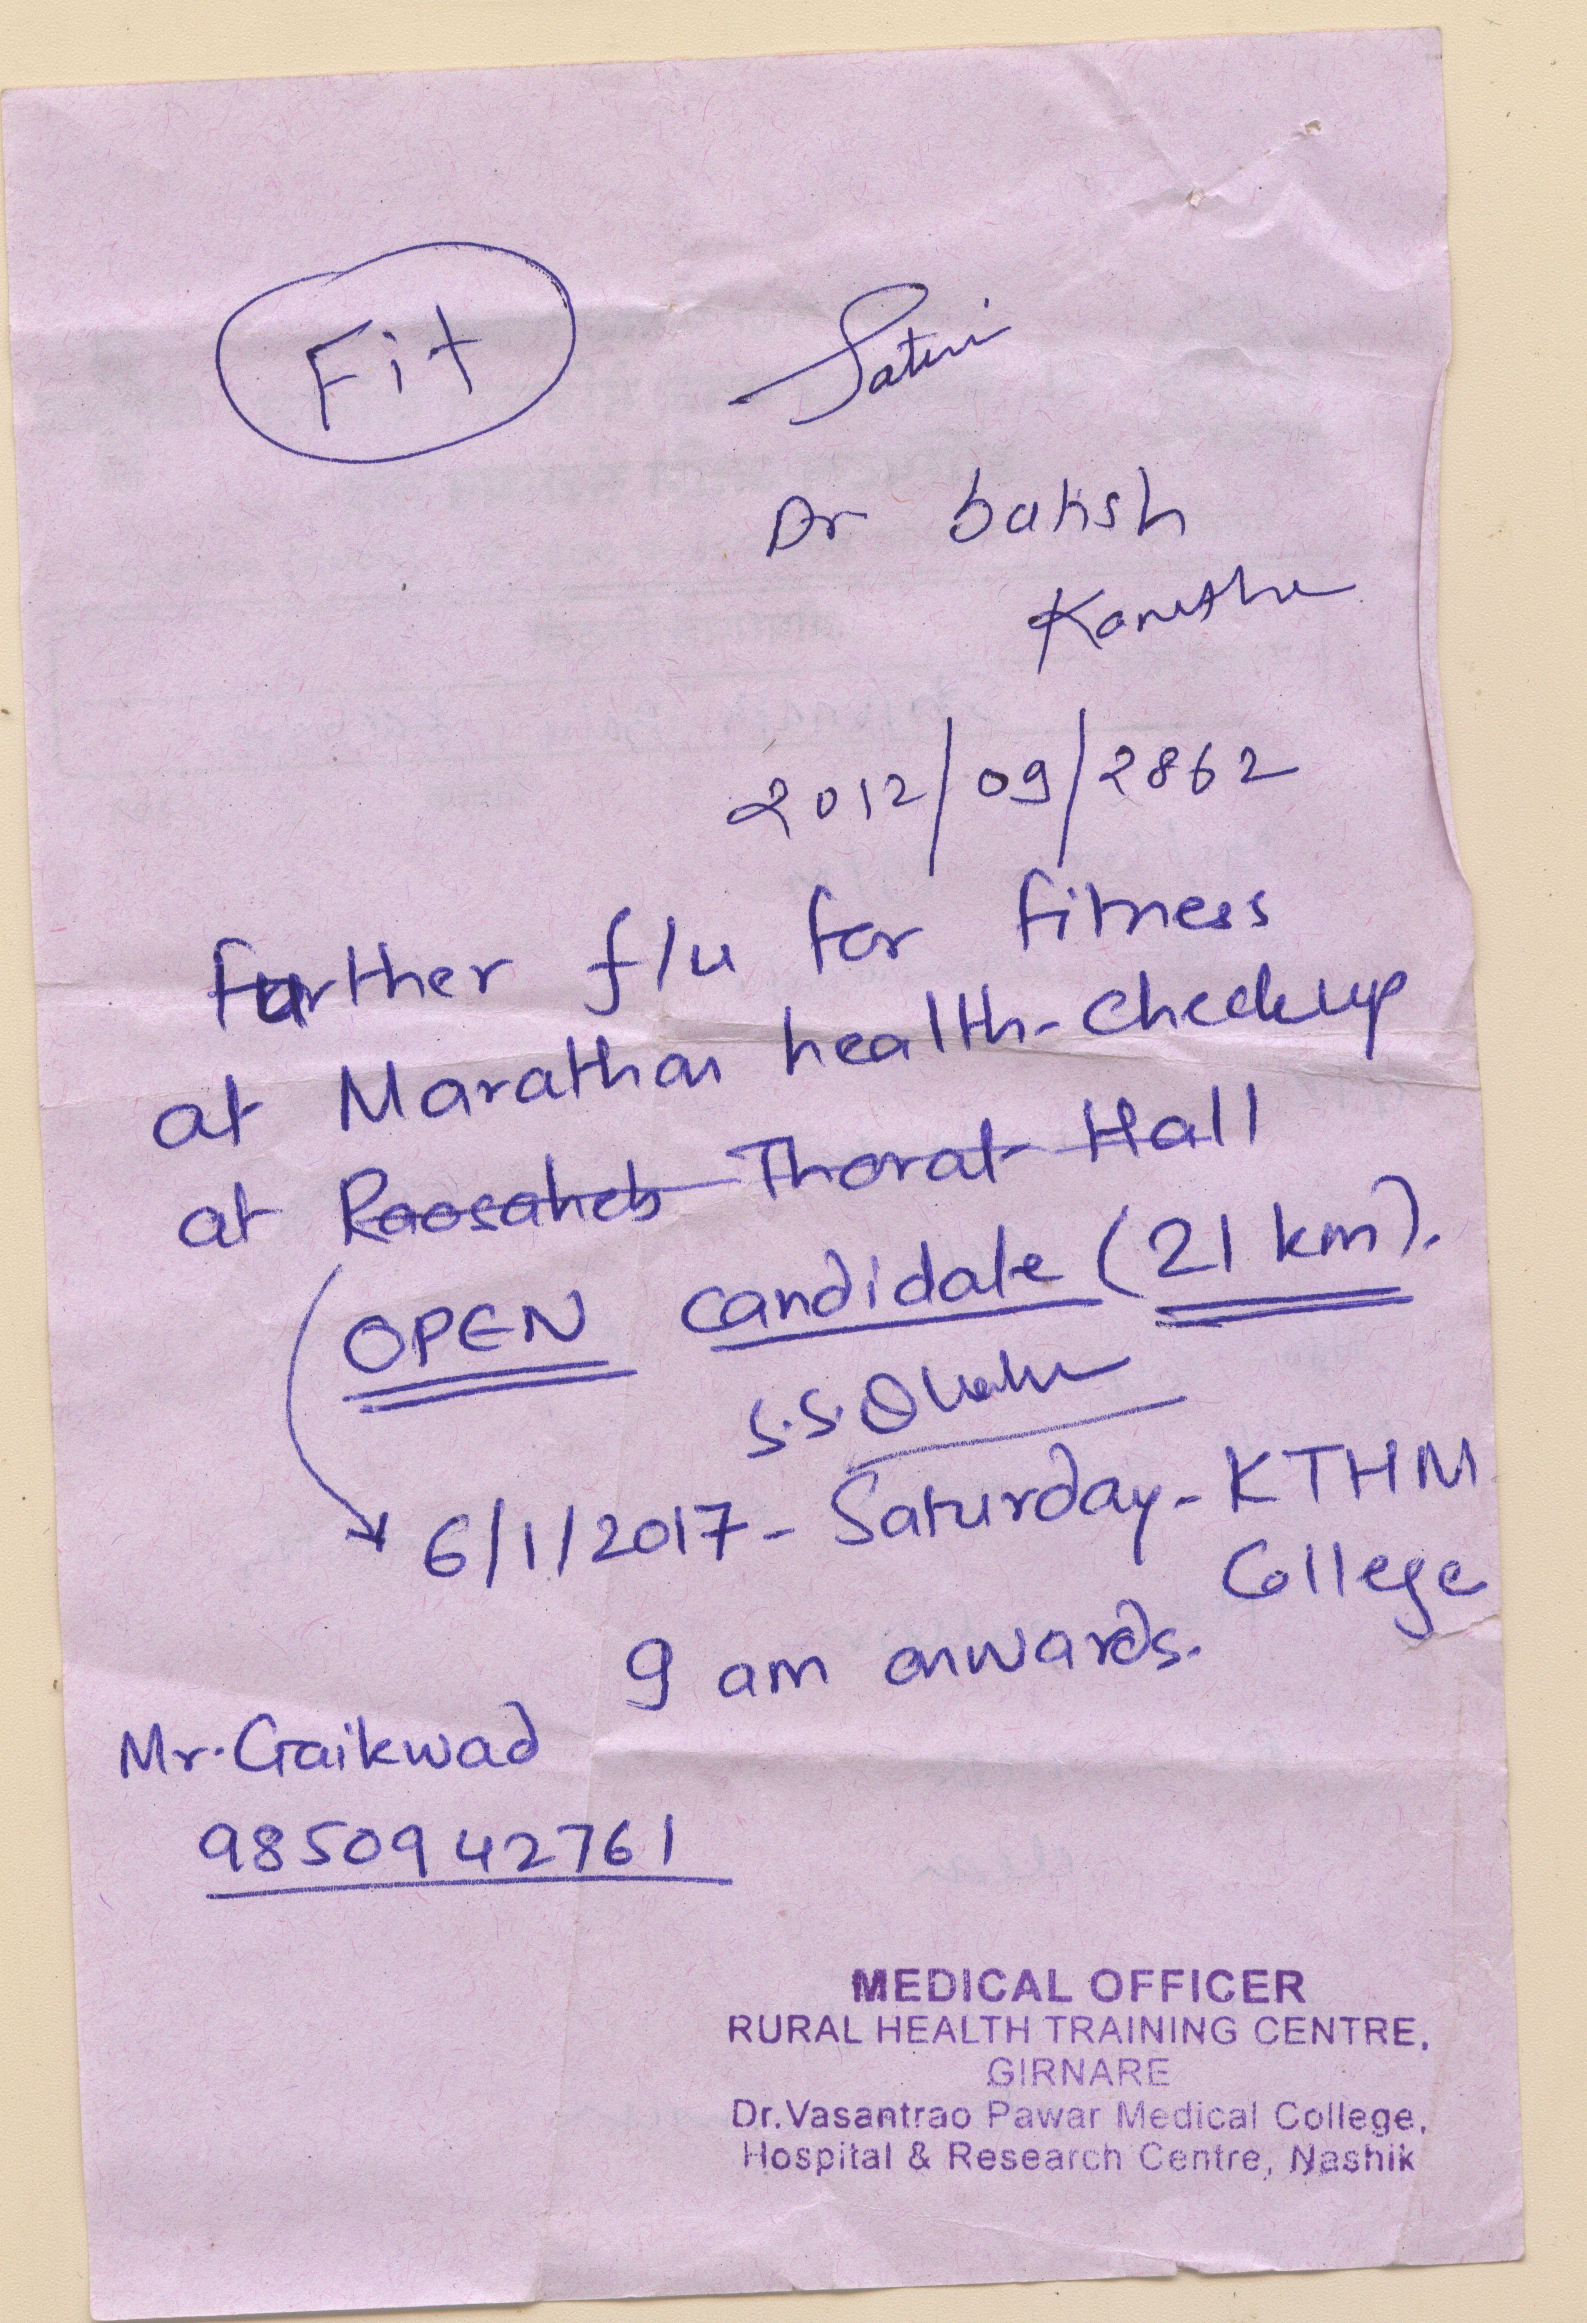 Fit
Dr Satish
2012/09/2862
further f/u for fitness
at Marathon health-checkup
at Raosaheb Thorat Hall
OPEN candidate (21 km).
S.S.
6/1/2017 - Saturday - KTHM
College
9 am onwards.
Mr. Gaikwad
9850942761
MEDICAL OFFICER
RURAL HEALTH TRAINING CENTRE,
GIRNARE
Dr. Vasantrao Pawar Medical College,
Hospital & Research Centre, Nashik